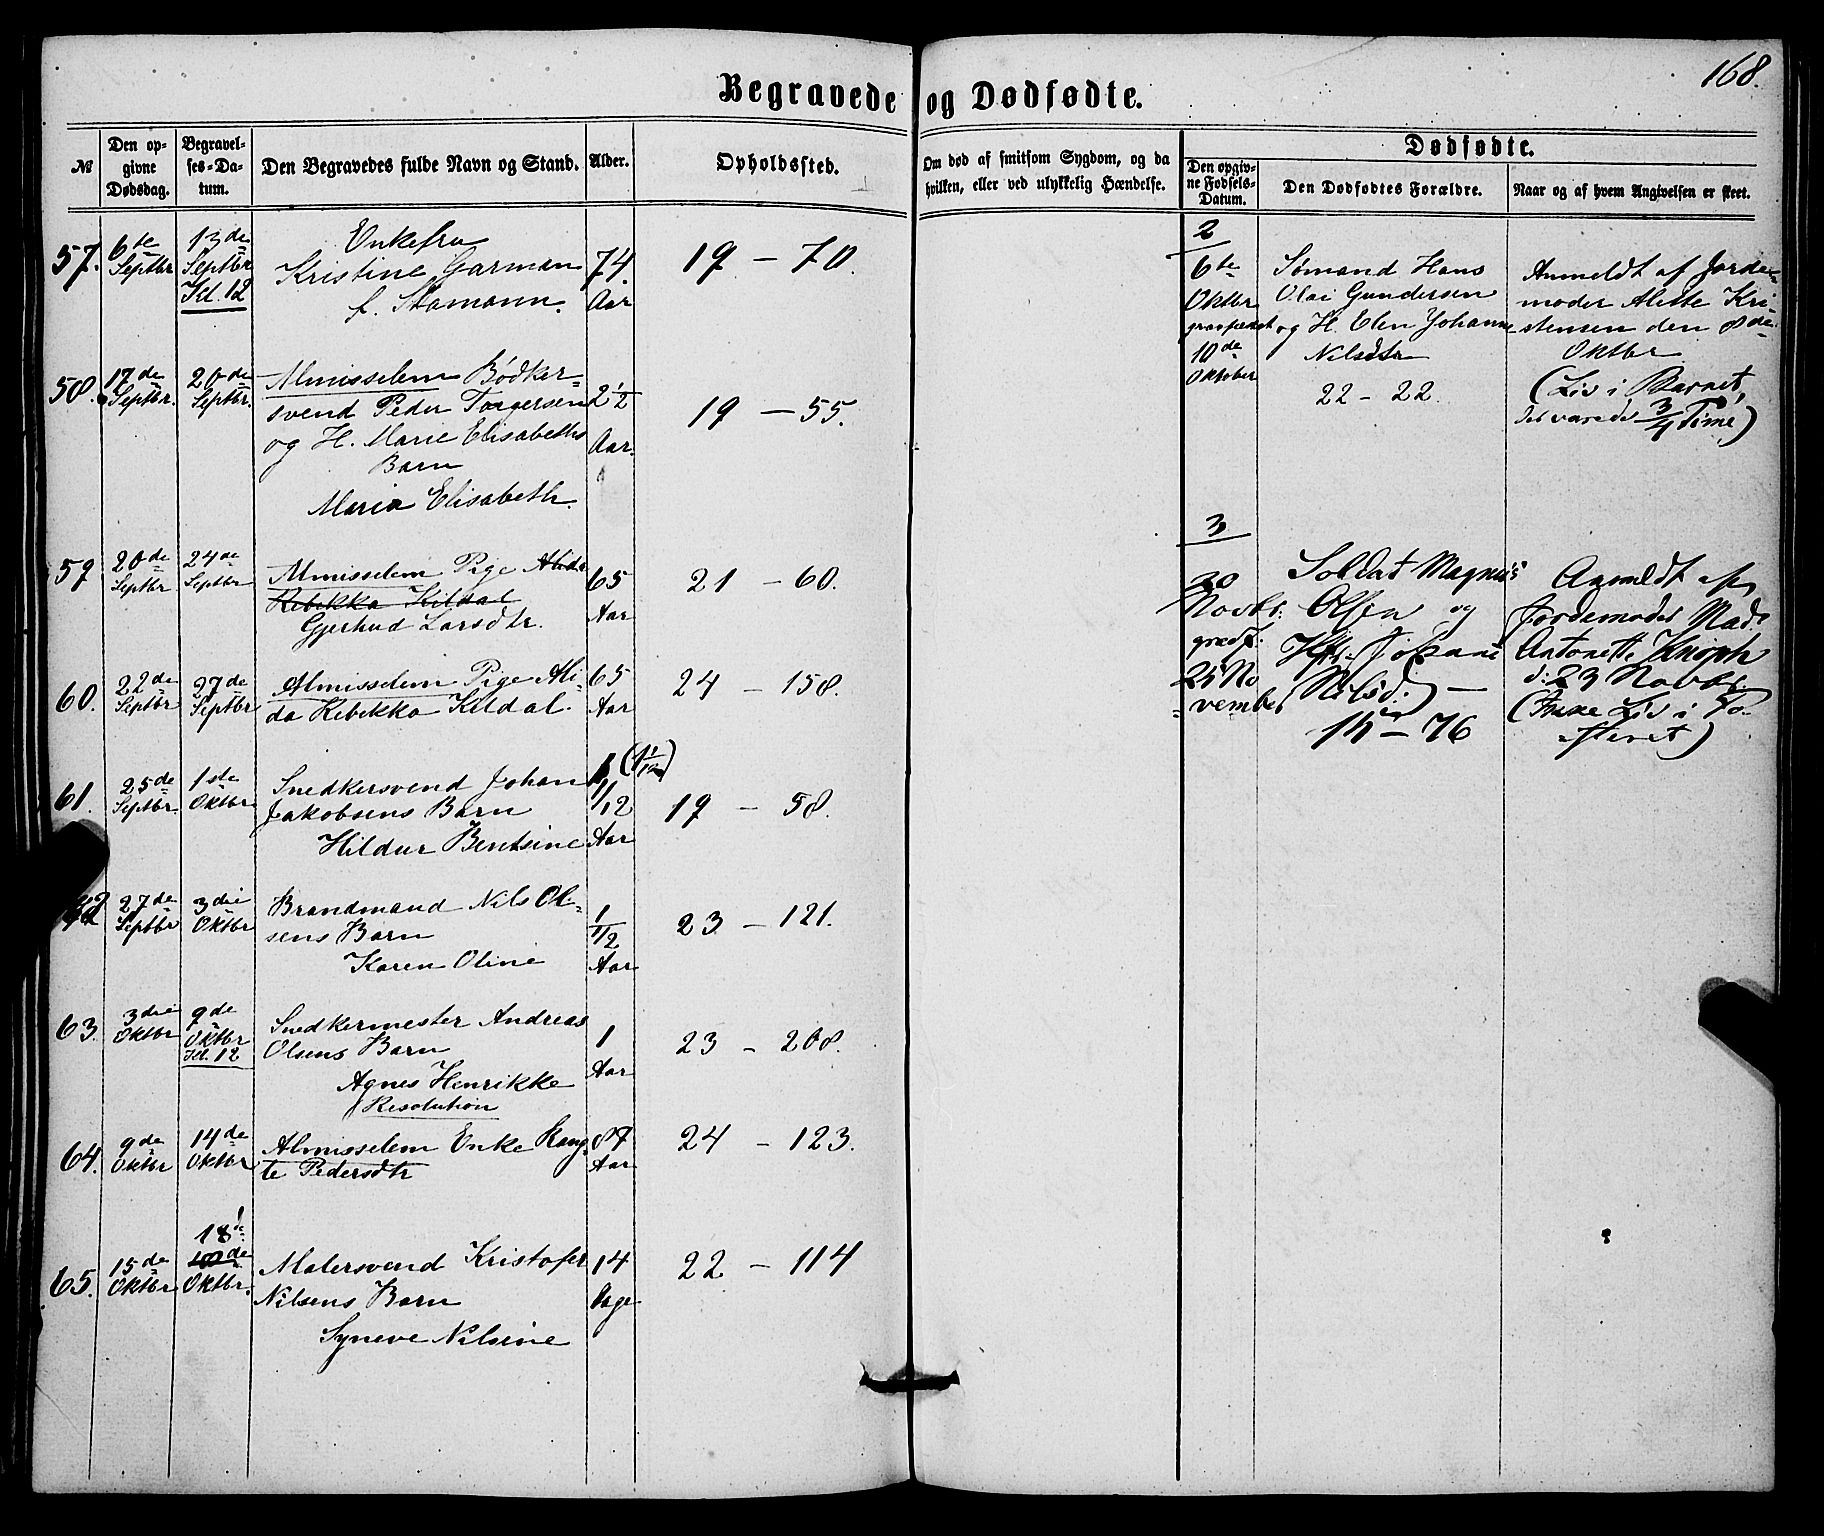 168.
Begravede og Dødfødte.
№
Den opgivne Dødsdag.
Begravelses-Datum.
Den Begravedes fulde Navn og Stand.
Alder.
Opholdssted.
Om død af smitsom Sygdom, og da hvilken, eller ved ulykkelig Hændelse.
Dødfødte.
Den opgivne Fødsels-Datum.
Den Dødfødtes Forældre.
Naar og af hvem Angivelsen er skeet.
57.
6te
Septbr
13de
Septbr
Kl. 12
Enkefru
Kristine Garman
f.
74
Aar
19 – 70.
58.
17de
Septbr.
20de
Septbr.
Almisselem Bødker-
svend Peder Torgersen
og H. Marie Elisabeths
Barn
Maria Elisabeth.
2½
Aar.
19 – 55.
59
20de
Septbr
24de
Septbr
Almisselem Pige Alida
Rebekka Kildal
Gjertrud Larsdtr.
65
Aar
21 – 60.
60.
22de
Septbr
27de
Septbr
Almisselem Pige Ali-
da Rebekka Kildal.
65
Aar
24 – 158.
61.
25de
Septbr
1ste
Oktbr
Snedkersvend Johan
Jakobsens Barn
Hildur Bentsine
(1 1/12)
1/12
Aar
19 – 58.
62
27de
Septbr
3die
Oktbr
Brandmand Nils Ol-
sens Barn
Karen Oline
1
1/12
Aar
23 – 121.
63.
3die
Oktbr
9de
Oktbr
Kl. 12
Snedkermester Andreas
Olsens Barn
Agnes Henrikke
Resolution
1
Aar
23 – 208.
64.
9de
Oktbr
14de
Oktbr
Almisselem Enke Rang-
te Pedersdtr
87
Aar
24 – 123.
65.
15de
Oktbr
18de
Oktbr.
Malersvend Kristofer
Nilsens Barn
Syneve Nilsine
14
Dage
22 – 114
2
6te
Oktbr
gravfæstet
10de
Oktober
Sømand Hans
Olai Gundersen
og H. Elen Johanne
Nilsdtr
22 – 22.
Anmeldt af Jorde-
moder Alette Kri-
stensen den 8de
Oktbr
(Liv i Barnet,
det varede 3/4 Time)
3
20
Novbr.
gravf.
25 No-
vember
Soldat Magnus
Olsen og
Hst. Johanne
(Nilsd.) –
15 – 76
Anmeldt af
Jordemoder Mad.
Antonette Knoph
d. 23 Novbr.
(Ikke Liv i Fo-
steret)